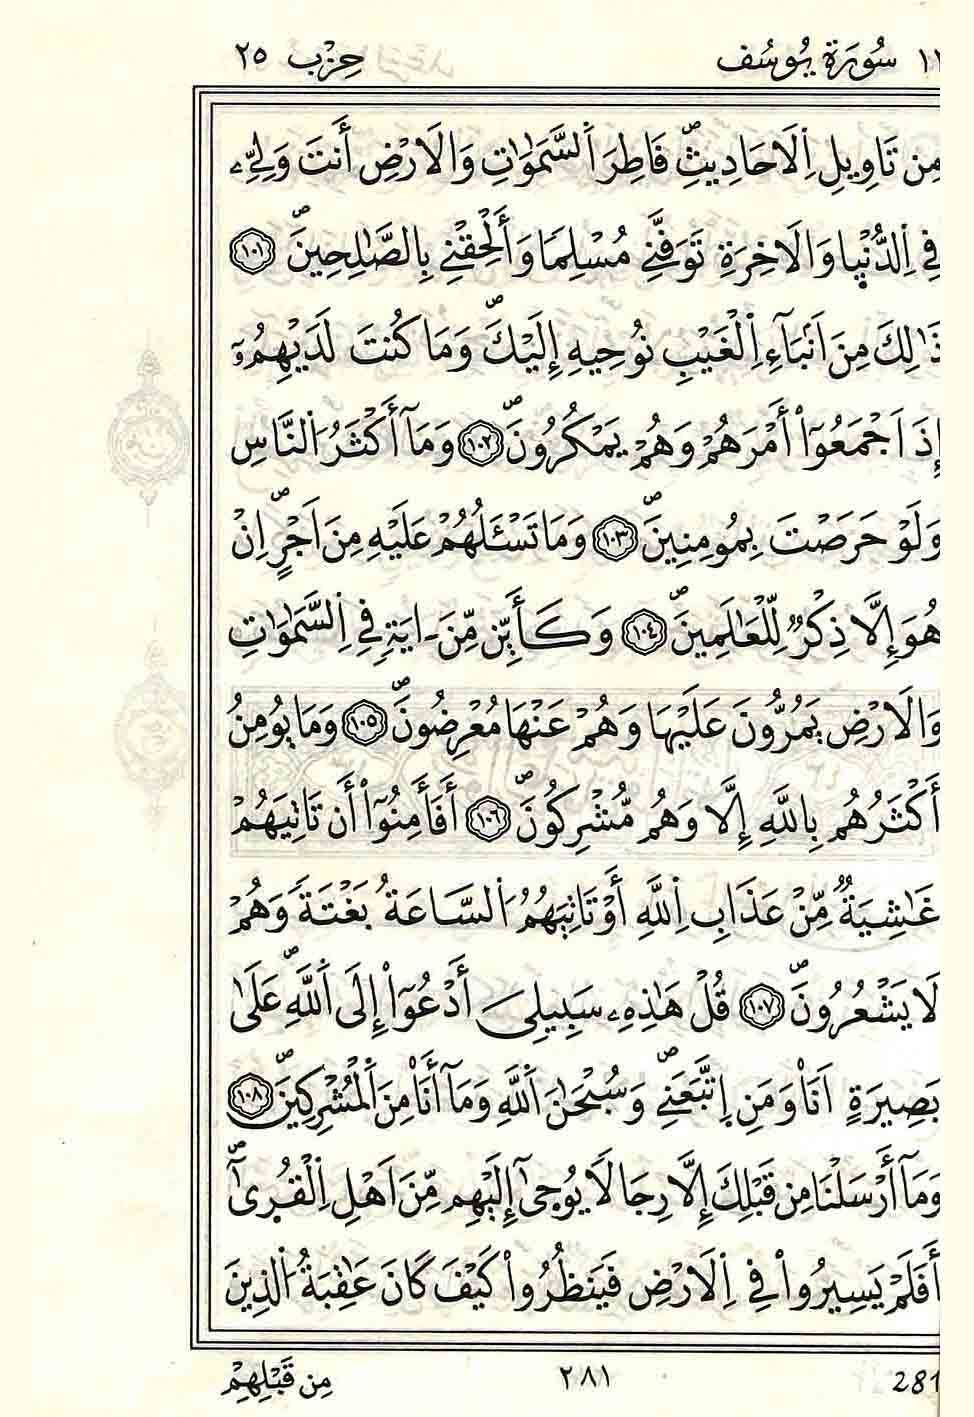 ١٢ سُورَةُ يُوسُف حِزْب ٢٥
مِن تَاوِيلِ اِ۬لَاحَادِيثِۖ فَاطِرَ اَ۬لسَّمَٰوَٰتِ وَالَارْضِ أَنتَ وَلِيِّۦ
فِے اِ۬لدُّنْي۪ا وَالَاخِرَةِ تَوَفَّنِے مُسْلِماٗ وَأَلْحِقْنِے بِالصَّٰلِحِينَۖ ١٠١
ذَٰلِكَ مِنَ اَنۢبَآءِ اِ۬لْغَيْبِ نُوحِيهِ إِلَيْكَۖ وَمَا كُنتَ لَدَيْهِمُۥٓ
إِذَ اَجْمَعُوٓاْ أَمْرَهُمْ وَهُمْ يَمْكُرُونَۖ ١٠٢ وَمَآ أَكْثَرُ اُ۬لنَّاسِ
وَلَوْ حَرَصْتَ بِمُومِنِينَۖ ١٠٣ وَمَا تَسْـَٔلُهُمْ عَلَيْهِ مِنَ اَجْرٍۖ اِنْ
هُوَ إِلَّا ذِكْرٞ لِّلْعَٰلَمِينَۖ ١٠٤ وَكَأَيِّن مِّنَ ـ ايَةٖ فِے اِ۬لسَّمَٰوَٰتِ
وَالَارْضِ يَمُرُّونَ عَلَيْهَا وَهُمْ عَنْهَا مُعْرِضُونَۖ ١٠٥ وَمَا يُومِنُ
أَكْثَرُهُم بِاللَّهِ إِلَّا وَهُم مُّشْرِكُونَۖ ١٠٦ أَفَأَمِنُوٓاْ أَن تَاتِيَهُمْ
غَٰشِيَةٞ مِّنْ عَذَابِ اِ۬للَّهِ أَوْ تَاتِيَهُمُ اُ۬لسَّاعَةُ بَغْتَةٗ وَهُمْ
لَا يَشْعُرُونَۖ ١٠٧ قُلْ هَٰذِهِۦ سَبِيلِيَ أَدْعُوٓاْ إِلَى اَ۬للَّهِۖ عَلَىٰ
بَصِيرَةٍ اَنَا۠ وَمَنِ اِ۪تَّبَعَنِےۖ وَسُبْحَٰنَ اَ۬للَّهِ وَمَآ أَنَا۠ مِنَ اَ۬لْمُشْرِكِينَۖ ١٠٨
وَمَآ أَرْسَلْنَا مِن قَبْلِكَ إِلَّا رِجَالاٗ يُوحَىٰٓ إِلَيْهِم مِّنَ اَهْلِ اِ۬لْقُر۪ىٰٓۖ
أَفَلَمْ يَسِيرُواْ فِے اِ۬لَارْضِ فَيَنظُرُواْ كَيْفَ كَانَ عَٰقِبَةُ اُ۬لذِينَ
281 ٢٨١ مِن قَبْلِهِمْ